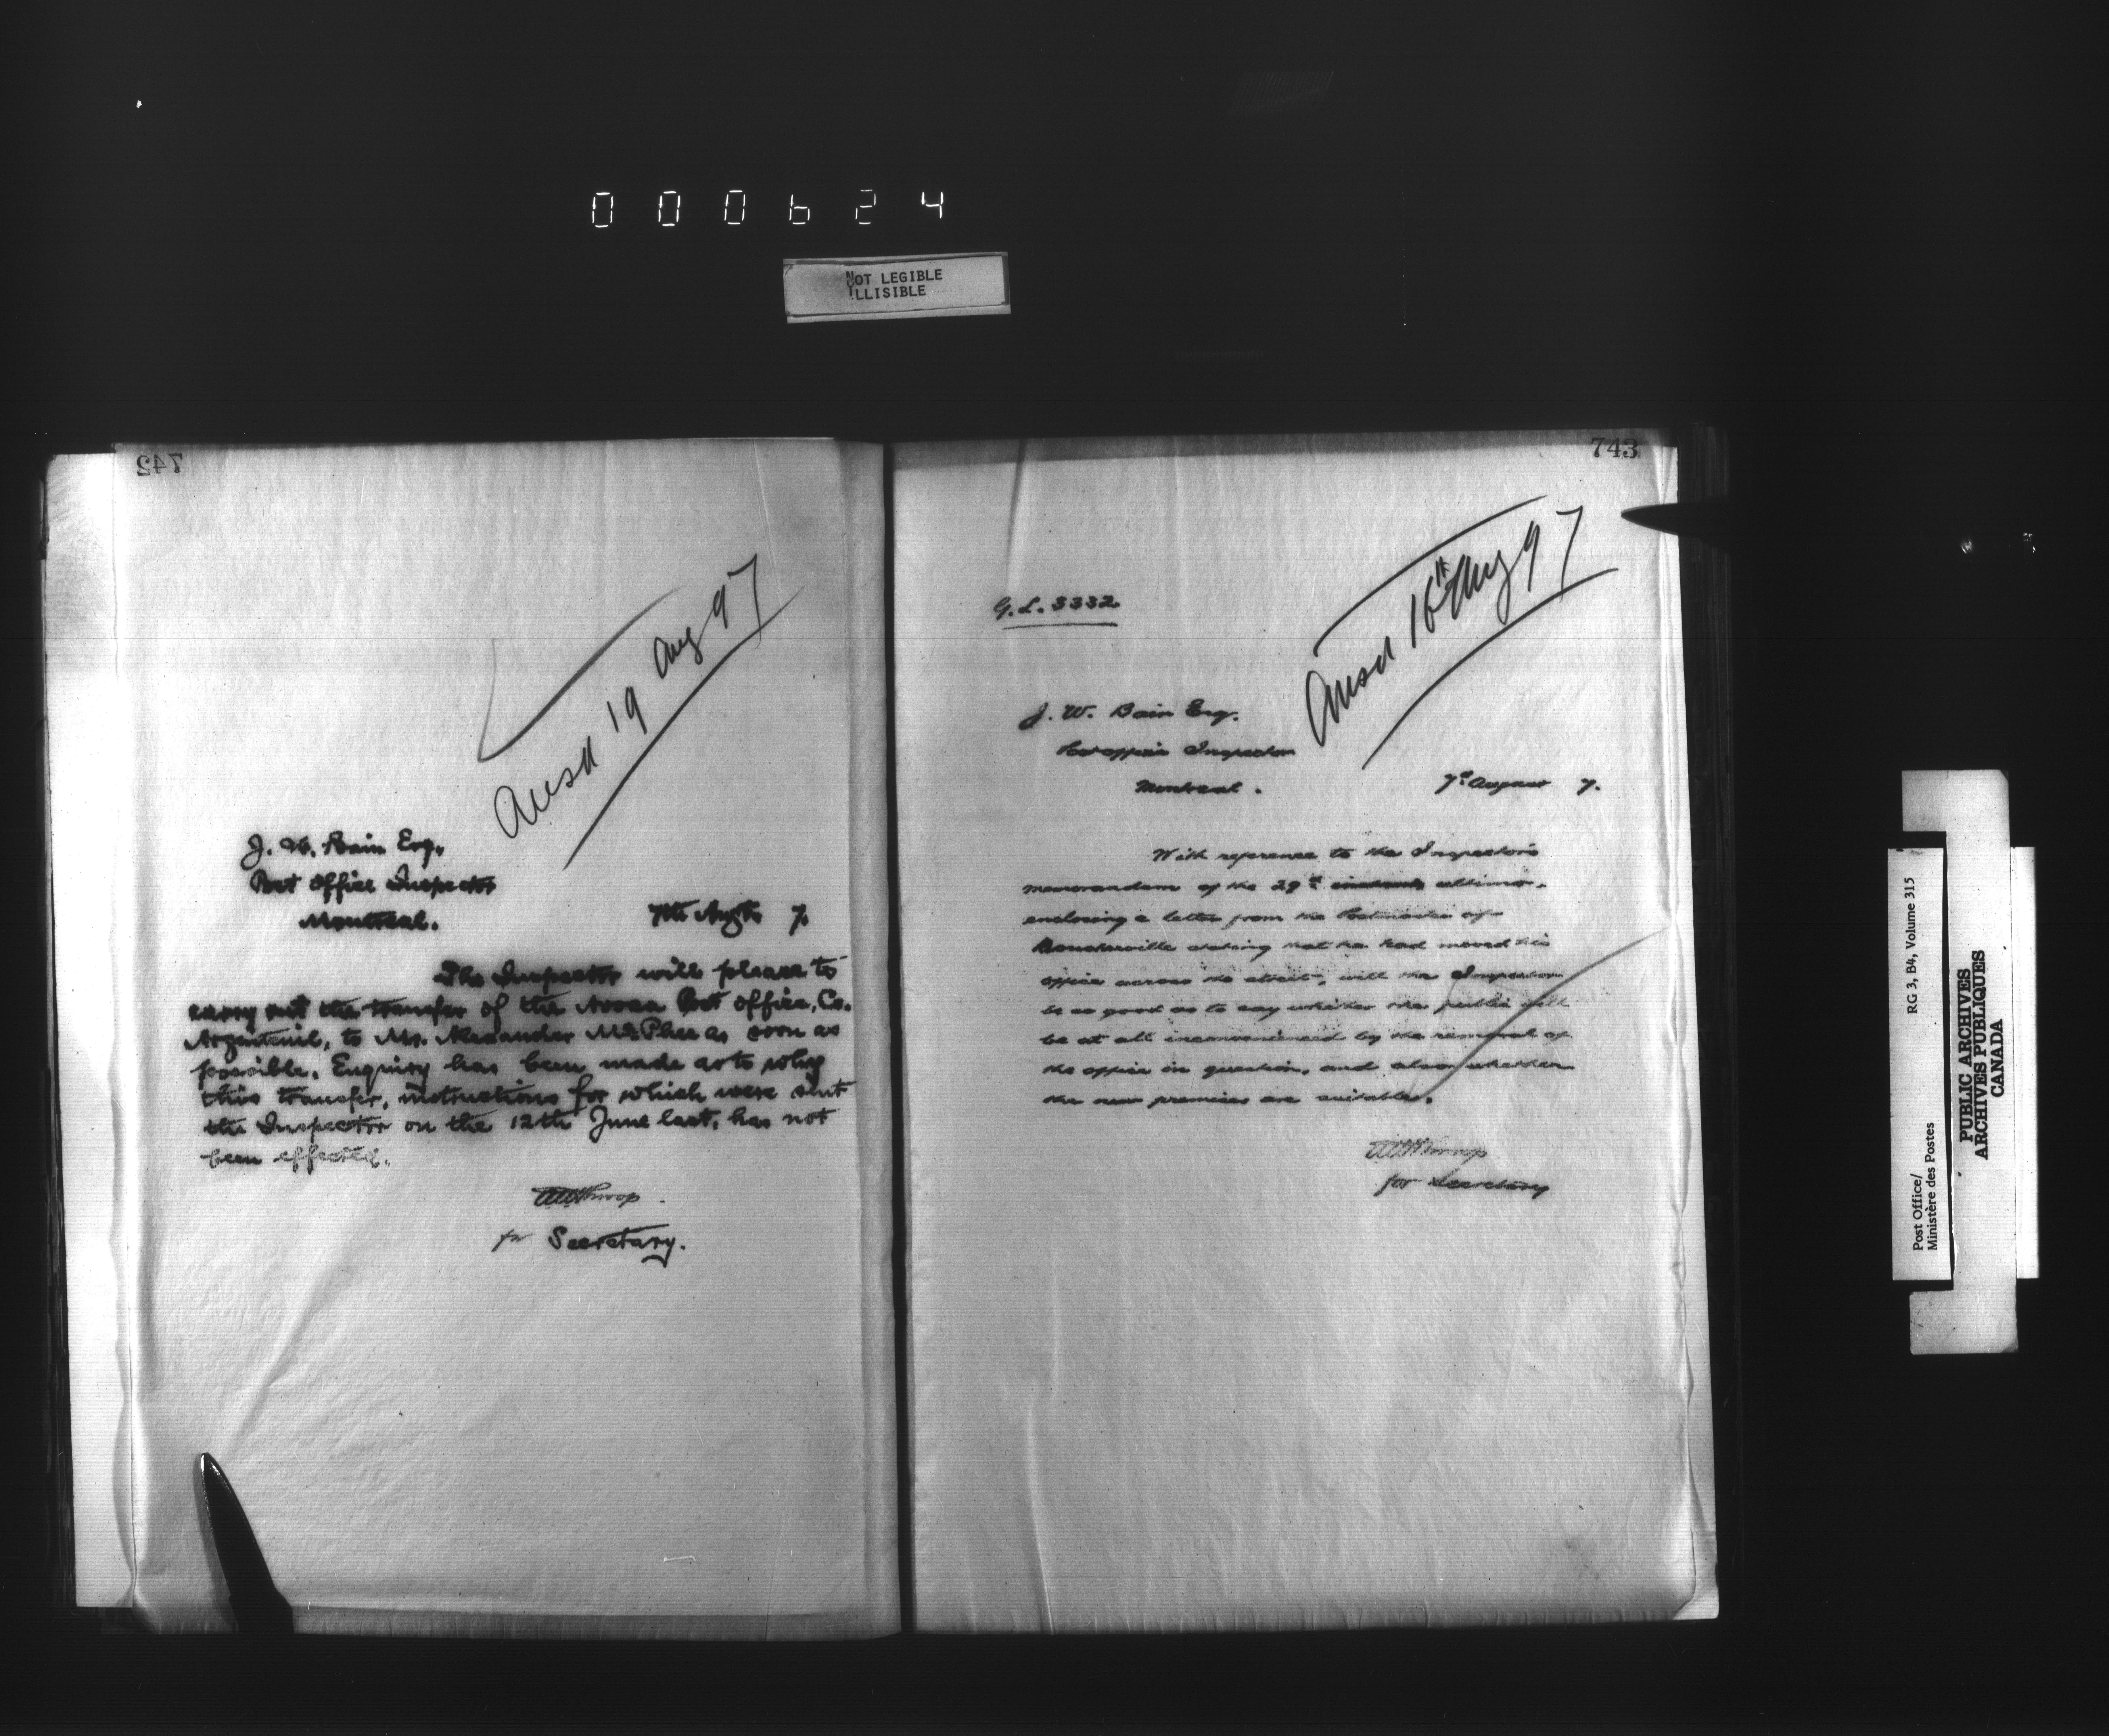 000624
NOT LEGIBLE
ILLISIBLE
742
Ansd 19 Aug 97
J. W. Bain Esq.
Post Office Inspector
Montreal.
7th Augt. 7.
The Inspector will please to
carry out the transfer of the Avoca Post Office, Co.
Argenteuil, to Mr. Alexander McPhee as soon as
possible. Enquiry has been made as to why
this transfer, instructions for which were sent
the Inspector on the 12th June last, has not
been effected.
for Secretary.
743
Ansd 16th Aug 97
G.L. 3332
J. W. Bain Esq.
Post office Inspector
Montreal.
7th August 7.
With reference to the Inspector's
memorandum of the 29th instant ultimo,
enclosing a letter from the Postmaster of
Boucherville stating that he had moved his
office across the street, will the Inspector
be so good as to say whether the public will
be at all inconvenienced by the removal of
the office in question, and also whether
the new premises are suitable.
for Secretary
Post Office/
Ministère des Postes
RG 3, B4, Volume 315
PUBLIC ARCHIVES
ARCHIVES PUBLIQUES
CANADA